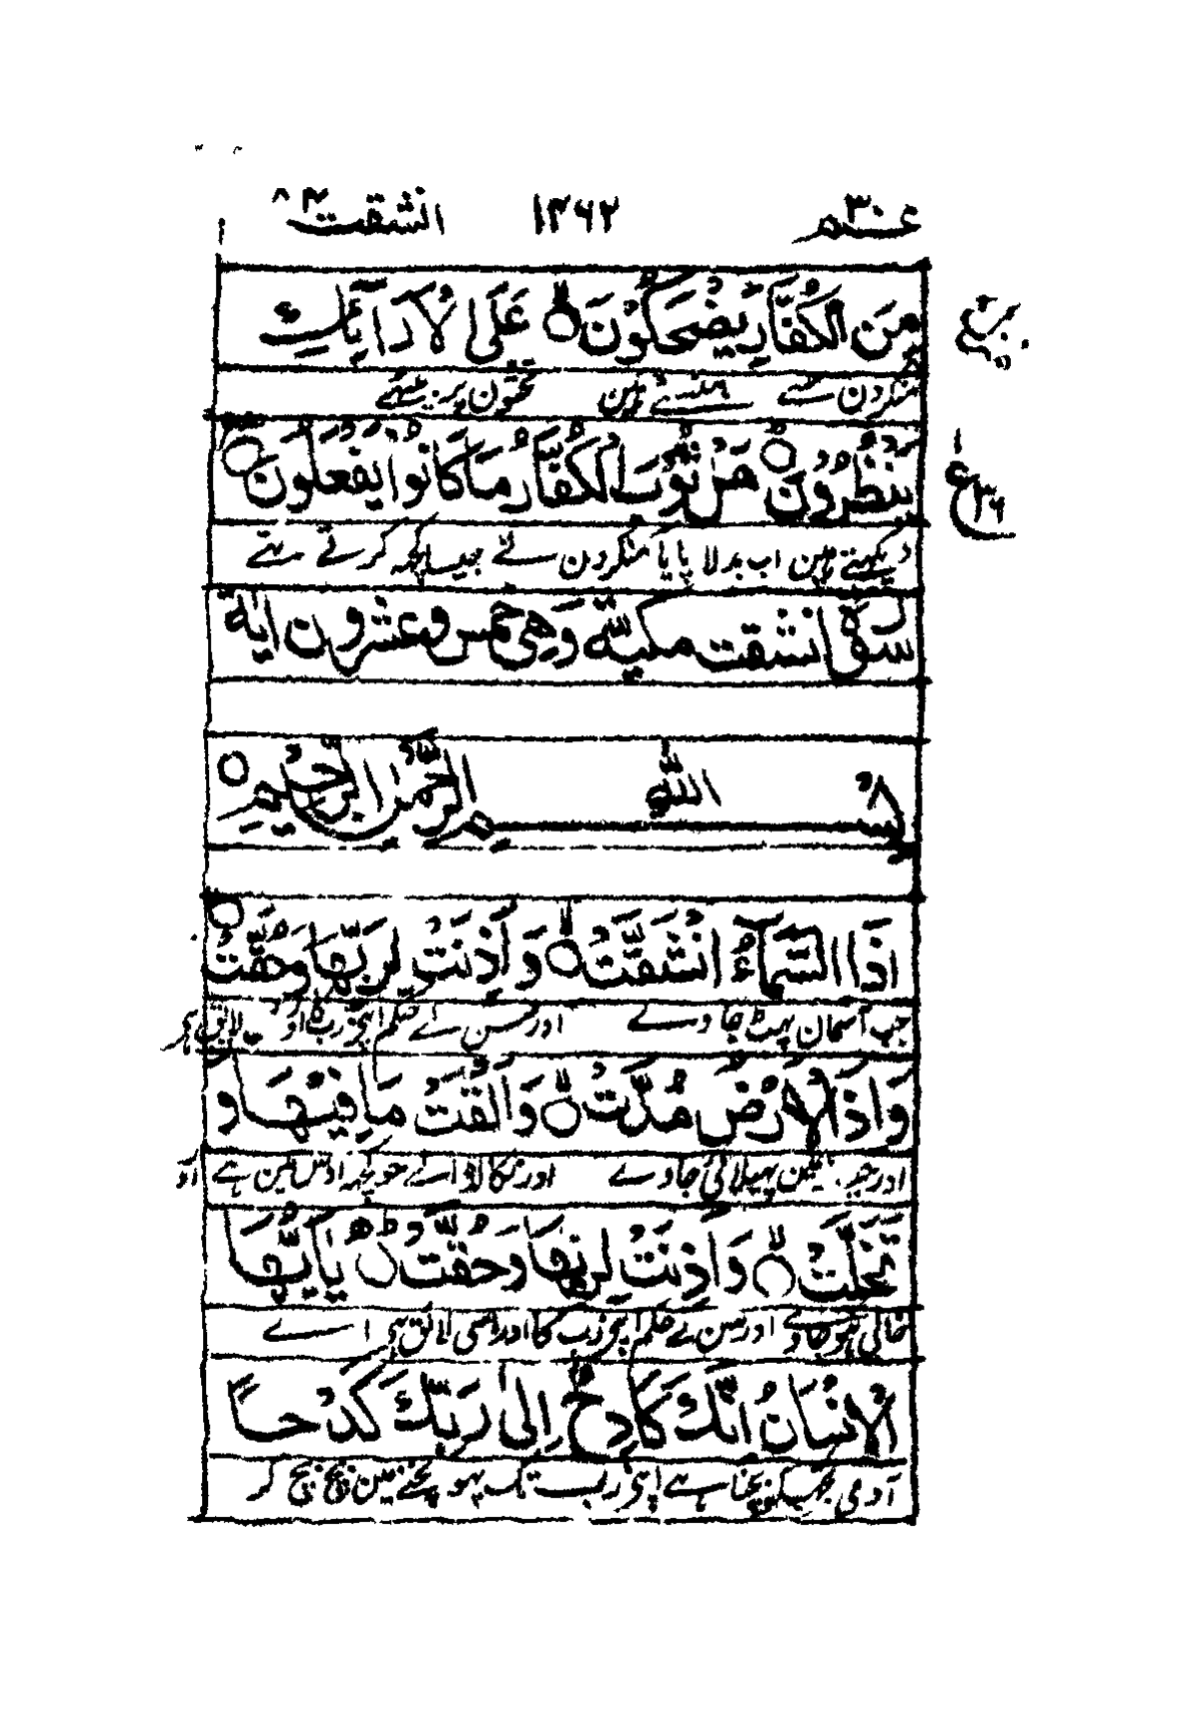 عـــم ٣٠ ١٣٦٢ انشقت ٨٤
مِنَ الْكُفَّارِ يَضْحَكُوْنَ ۙ عَلَى الْاَرَآئِكِ
منکرون سے ہنستے ہین تختون پر بیٹھے
يَنْظُرُوْنَ ۙ هَلْ ثُوِّبَ الْكُفَّارُ مَا كَانُوْا يَفْعَلُوْنَ
ع ٣٦
دیکھتے ہین اب بدلا پایا منکرون نے جیسا کچھ کرتے تھے
انشقت مكيّة وَهِىَ خمس وعشرون اية
بِسْــــمِ اللهِ الرَّحْمٰنِ الرَّحِيْمِ
اِذَا السَّمَآءُ انْشَقَّتْ ۙ وَاَذِنَتْ لِرَبِّهَا وَحُقَّتْ
جب آسمان پھٹ جاوے اور سن لے حکم اپنے رب کا اور لائق ہی
وَاِذَا الْاَرْضُ مُدَّتْ ۙ وَاَلْقَتْ مَا فِيْهَا وَ
اور جب زمین پھیلائی جاوے اور نکال ڈالے جو کچھ اوس مین ہے اور
تَخَلَّتْ ۙ وَاَذِنَتْ لِرَبِّهَا وَحُقَّتْ ۗ يٰاَيُّهَا
خالی ہو جاوے اور سن لے حکم اپنے رب کا اور اسی لائق ہی اے
الْاِنْسَانُ اِنَّكَ كَادِحٌ اِلٰى رَبِّكَ كَدْحًا
آدمی تجھکو پچنا ہے اپنے رب تک پہونچنے مین پچ پچ کر